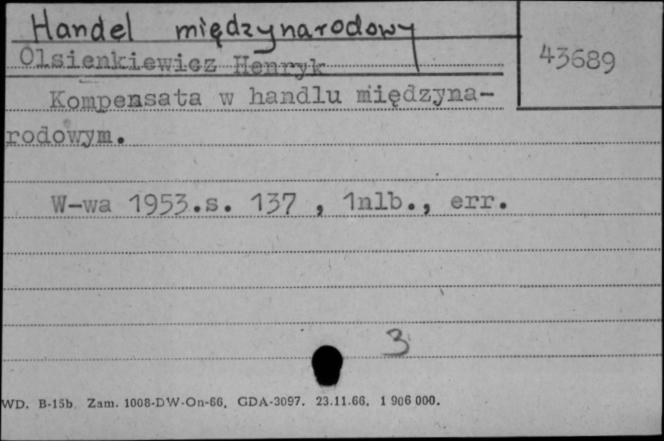 Handel międzynarodowy
Olsienkiewicz Henryk
43689
Kompensata w handlu międzyna-
rodowym.
W-wa 1953.s. 137 , 1nlb., err.
3
WD. B-15b Zam. 1008-DW-On-66, GDA-3097. 23.11.66. 1 906 000.